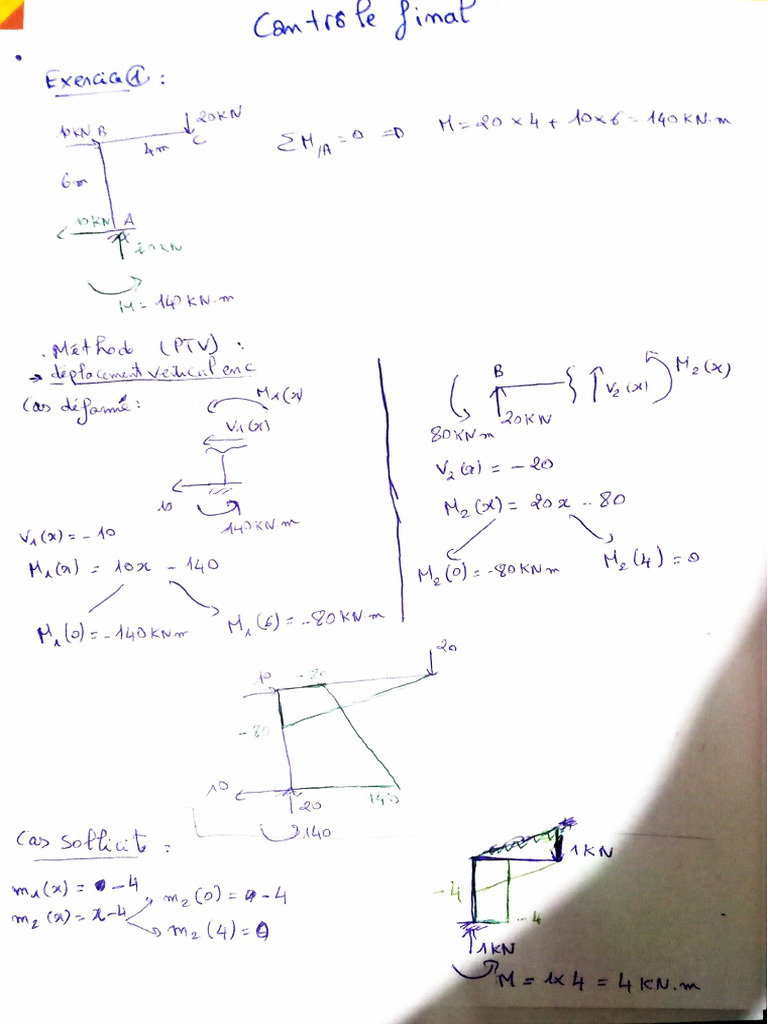 Contrôle final
Exercice ① :
10KN B
20KN
C
4m
6m
10KN A
20KN
M = 140 KN.m
ΣM/A = 0 => M = 20 x 4 + 10 x 6 = 140 KN.m
. Méthode (PTV) :
→ déplacement vertical en c
Cas déformé :
M1(x)
V1(x)
10
140 KN.m
V1(x) = -10
M1(x) = 10x - 140
M1(0) = -140 KN m
M1(6) = -80 KN.m
B
V2(x)
M2(x)
20KN
80 KN m
V2(x) = -20
M2(x) = 20x - 80
M2(0) = -80 KN m
M2(4) = 0
20
10
-80
-80
10
20
140
140
Cas sollicit :
m1(x) = -4
m2(x) = x-4
m2(0) = -4
m2(4) = 0
1KN
-4
-4
1KN
M = 1x4 = 4 KN.m